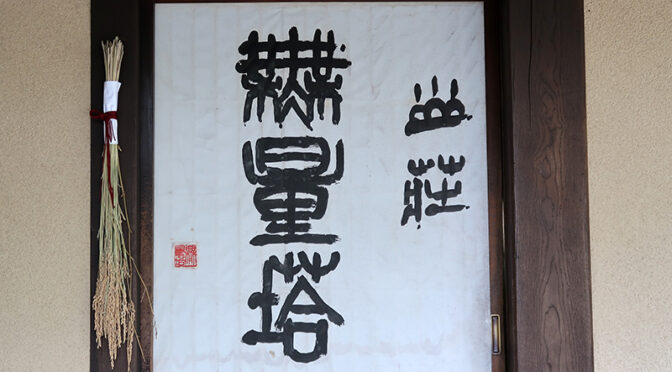 山荘
無量塔